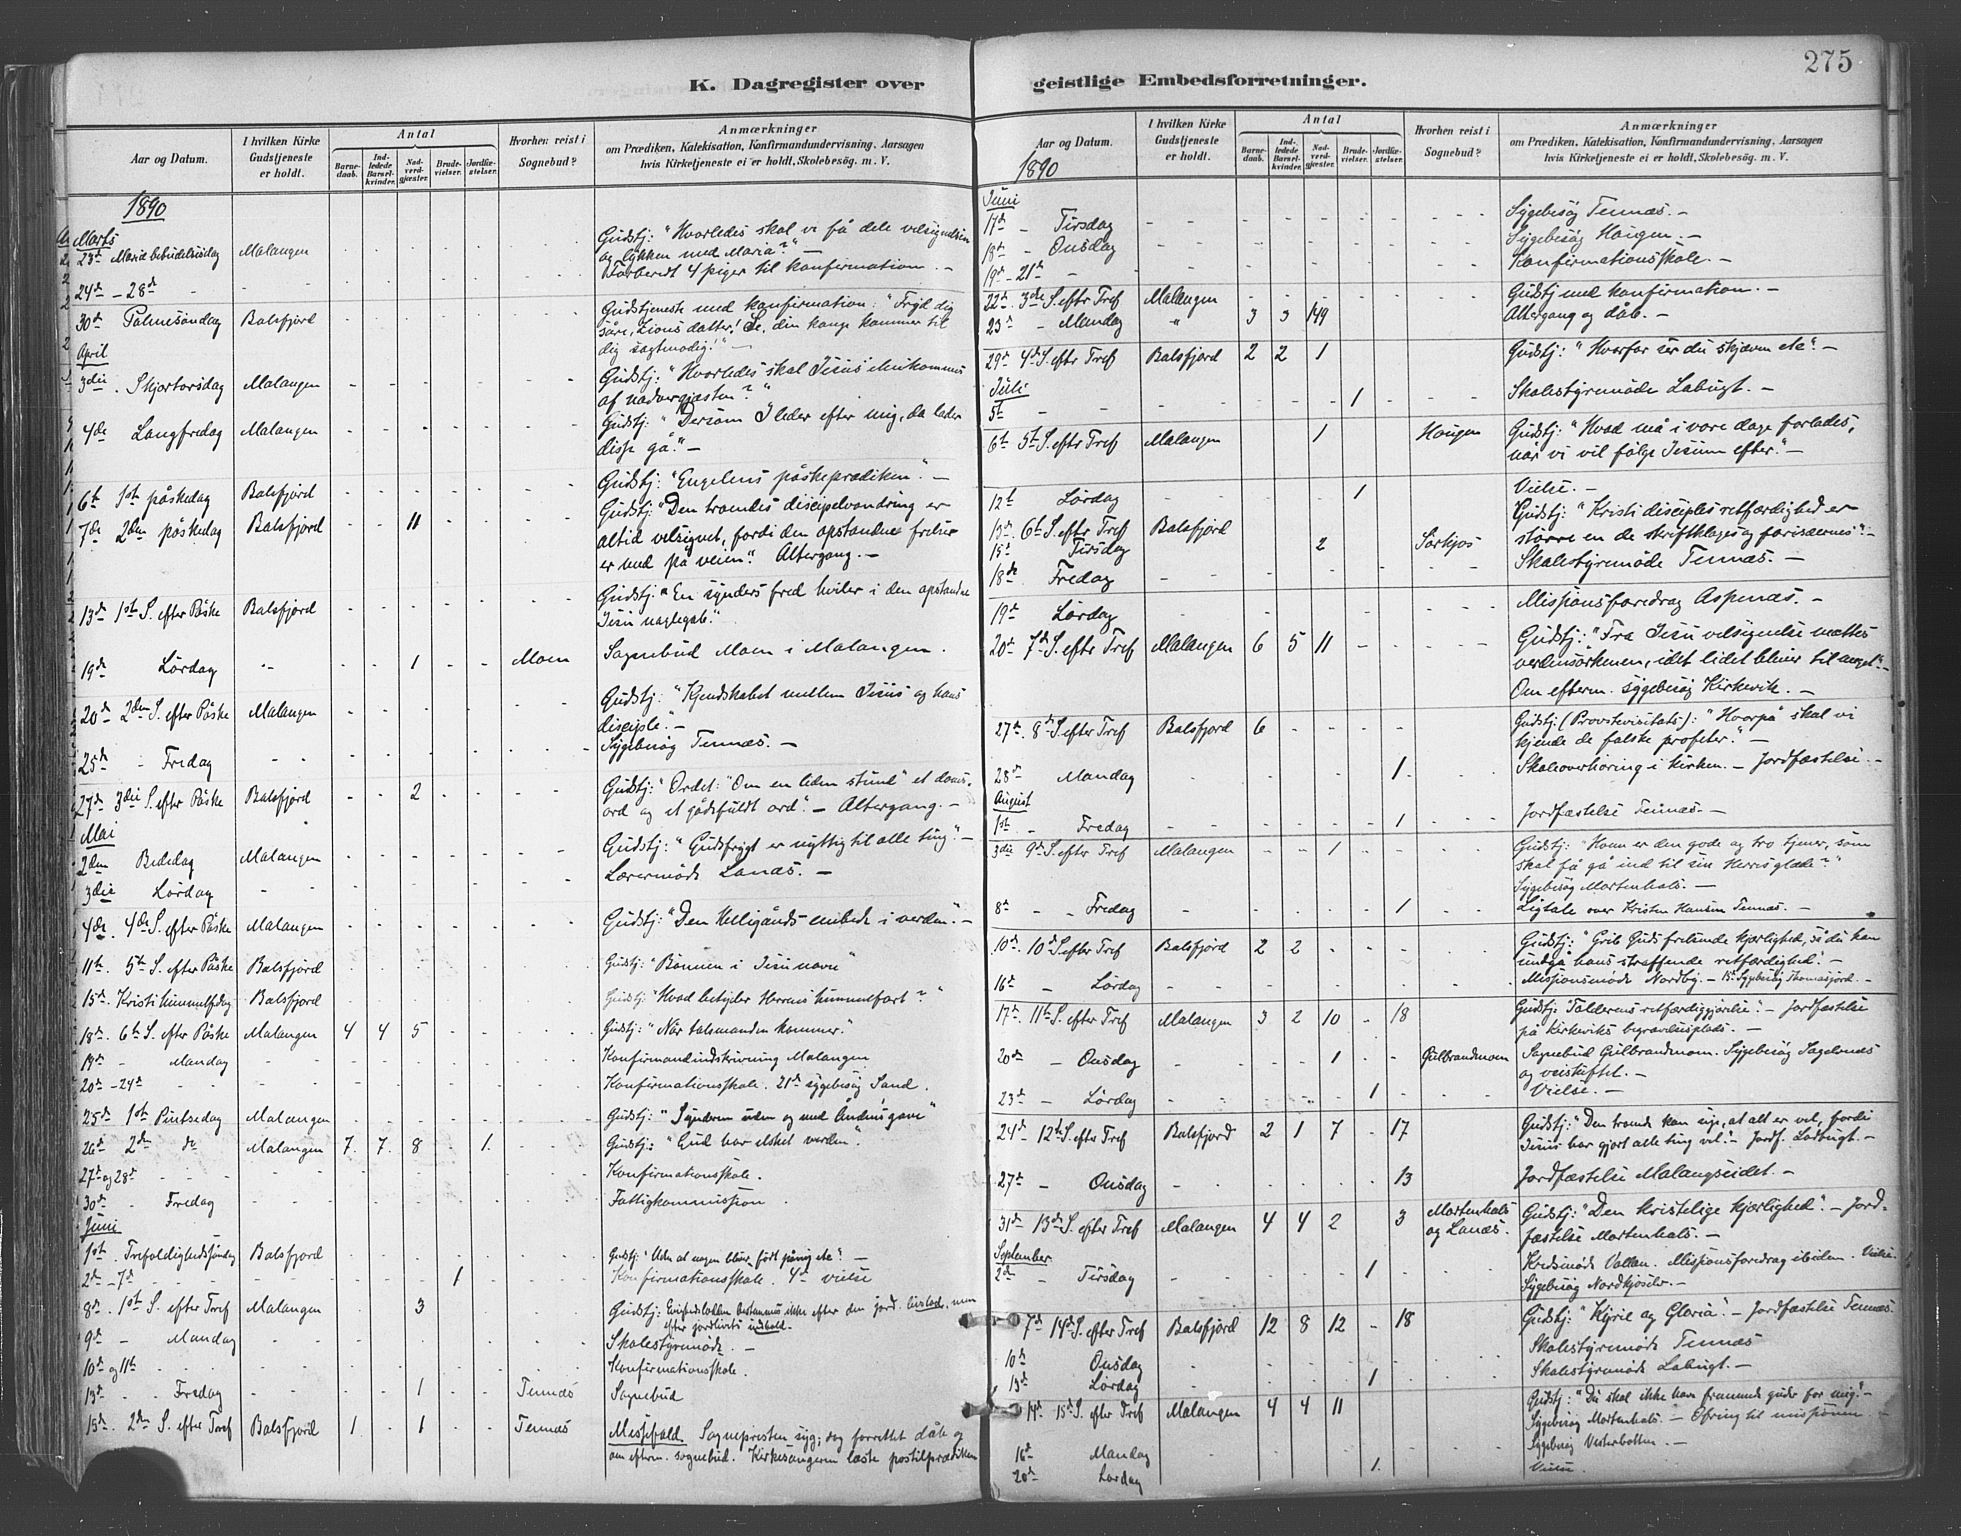 275
K. Dagregister over
Aar og Datum.
I hvilken Kirke Gudstjeneste er holdt.
Antal
Barnedaab.
Indledede Barselkvinder.
Nadverdgjæster.
Brudevielser.
Jordfæstelser.
Hvorhen reist i Sognebud?
Anmærkninger
om Prædiken, Katekisation, Konfirmandundervisning, Aarsagen
hvis Kirketjeneste ei er holdt, Skolebesög. m. V.
1890
Marts
23de Mariæ bebudelsesdag Malangen - - - - - - Gudstj: "Hvorledes skal vi få dele velsignelsen
og lykken med Maria?" -
24de - 28de - - - - - - - Forberedt 4 piger til konfirmation. -
30de Palmesöndag Balsfjord - - - - - - Gudstjeneste med konfirmation: "Fryd dig
såre, Zions datter! Se, din konge kommer til
dig sagtmodig!" -
April
3die . Skjærtorsdag Malangen - - - - - - Gudstj: "Hvorledes skal Jesus ihukommes
af nadvergjæsten?"
4de Langfredag Malangen - - - - - - Gudstj: "Dersom I leder efter mig, da lader
disse gå." -
6te 1ste påskedag Balsfjord - - - - - - Gudstj: "Engelens påskeprædiken." -
7de 2den påskedag Balsfjord - - 11 - - - Gudstj: "Den troendes discipelvandring er
altid velsignet, fordi den opstandne frelser
er med på veien." Altergang. -
13de 1ste S. efter Påske Balsfjord - - - - - - Gudstj: "En synders fred hviler i den opstandne
Jesu naglegab."
19de Lördag - - - 1 - - Moen Sognebud Moen i Malangen.
20de 2den S. efter Påske Malangen - - - - - - Gudstj: "Kjendskabet mellem Jesus og hans
disciple." -
25de - Fredag - - - - - - - Sygebesög Tennæs. -
27de 3die S. efter Påske Balsfjord - - 2 - - - Gudstj: "Ordet: "Om en liden stund" et doms-
ord og et gådefuldt ord." - Altergang. -
Mai
2den Bededag Malangen - - - - - - Gudstj: "Gudsfrygt er nyttig til alle ting". -
3die Lördag - - - - - - - Lærermöde Lanæs. -
4de. 4de S. efter Påske Malangen - - - - - - Gudstj: "Den Helligånds embede i verden". -
11te. 5te S. efter Påske Balsfjord - - - - - - Gudstj: "Bönnen i Jesu navn"
15de. Kristi himmelfdag Balsfjord - - - - - - Gudstj: "Hvad betyder Herrens himmelfart?"
18de. 6te S. efter Påske Malangen 4 4 5 - - - Gudstj: "Når talsmanden kommer."
19de - Mandag - - - - - - Konfirmandindskrivning Malangen
20de - 24de - - - - - - - Konfirmationsskole. 21de sygebesög Sand.
25de 1ste Pintsedag Malangen - - - - - - Gudstj: "Synderen uden og med Åndens gave"
26de 2den do Malangen 7. 7. 8 - 1. - Gudstj: "Gud har elsket verden".
27de og 28de - - - - - - - Konfirmationsskole.
30de - Fredag - - - - - - Fattigkommission.
Juni
1ste. Trefoldighedssöndag Balsfjord - - - - - - Gudstj: "Uden at nogen bliver födt påny etc". -
2de - 7de - - - - - 1 - - Konfirmationsskole. 4de vielse
8de. 1ste S. efter Tref Malangen - - 3 - - - Gudstj: bestemmes ikke efter den jord. livslede, men
efter jordlivets indhold.
9de - Mandag - - - - - - Skolestyremöde. -
10de og 11te - - - - - - - Konfirmationsskole.
13de - - Fredag - - - 1 - - Tennæs Sognebud
15de. 2den S. efter Tref Balsfjord 1 - 1 - - Tennæs Messefald. Sognepresten syg; dog forrettet dåb og
om efterm. sognebud. Kirkesangeren læste postilprædiken
geistlige Embedsforretninger.
Aar og Datum.
I hvilken Kirke Gudstjeneste er holdt.
Antal
Barnedaab.
Indledede Barselkvinder.
Nadverdgjæster.
Brudevielser.
Jordfæstelser.
Hvorhen reist i Sognebud?
Anmærkninger
om Prædiken, Katekisation, Konfirmandundervisning, Aarsagen
hvis Kirketjeneste ei er holdt, Skolebesög. m. V.
1890
Juni
17de - Tirsdag - - - - - - - Sygebesög Tennæs. -
18de - Onsdag - - - - - - - Sygebesög Haugen. -
19de - 21de - - - - - - - Konfirmationsskole. -
22de 3die S. efter Tref Malangen - - - - - - Gudstj med konfirmation. -
23de - Mandag " 3 3 149 Altergang og dåb. -
29de 4de S. efter Tref Balsfjord 2 2 1 - - - Gudstj: "Hvorfor ser du skjæven etc". -
Juli
5te - - - - - 1 - - Skolestyremöde Labugt. -
6te 5te S. efter Tref Malangen 1 - - Haugen Gudstj: "Hvad må i vore dage forlades,
når vi vil fölge Jesum efter." -
12te Lördag - - - - 1 - - Vielse. -
13de 6te S. efter Tref Balsfjord Gudstj: "Kristi disciples retfærdighed er
större en de skriftkloges og farisæernes" -
15de Tirsdag 2 Sörkjos
18de Fredag - - - - - - - Skolestyremöde Tennæs. -
19de Lördag - - - - - - - Missionsforedrag Aspenæs. -
20de 7de S. efter Tref Malangen 6 5 11 - - - Gudstj: "Fra Jesu velsignelse mættes
verdensörkenen, idet lidet bliver til meget". -
Om efterm. sygebesög Kirkevik. -
27de. 8de S. efter Tref Balsfjord 6 - - - - Gudstj: (Provstevisitats): "Hvorpå skal vi
kjende de falske profeter." -
28de Mandag - - - - 1. - Skoleoverhöring i kirken. - Jordfæstelse. -
August
1ste - Fredag - - - - - 1 - Jordfæstelse Tennæs -
3die 9de S. efter Tref Malangen - - 1 - - - Gudstj: "Hvem er den gode og tro tjener, som
skal få gå ind til sin Herres glæde?"
Sygebesög Mortenhals. -
8de - - Fredag - - - - - 1 - Ligtale over Kristen Hansen Tennæs. -
10de. 10de S. efter Tref Balsfjord 2 2 - - - Gudstj: "Grib Guds frelsende kjærlighed, så du kan
undgå hans straffende retfærdighed! -
16de - Lördag - - - - - - - Missionsmöde Nordby. - 15de Sygebesög Thomasjord. -
17de. 11te S. efter Tref Malangen 3 2 10 - 18 Gudstj: "Tolderens retfærdiggjörelse". - Jordfæstelse
på Kirkeviks begravelsesplads. -
20de - Onsdag - - - 1 - - Gulbrandmoen Sognebud Gulbrandmoen. Sygebesög Sagelvnæs
og veistiftet. -
23de - Lördag - - - - 1 - - Vielse. -
24de 12te S. efter Tref Balsfjord 2 1 7 - 17 Gudstj: "Den troende kan sige, at alt er vel, fordi
Jesus har gjort alle ting vel. - Jordf. Ladbugt. -
27de - Onsdag - - - - - 13 Jordfæstelse Malangseidet. -
31de 13de S. efter Tref Malangen 4 4 2 3 Mortenhals og Lanæs. Gudstj: "Den kristelige kjærlighed". - Jord-
fæstelse Mortenhals. -
September
2de - Tirsdag - - - - 1 - - Kredsmöde Vollan. Missionsforedrag ibiden. Vielse.
Sygebesög Nordkjosbt. -
7de 14de S. efter Tref Balsfjord 12 8 12 - 18 Gudstj: "Kyrie og Gloria". - Jordfæstelse Tennæs.
10de Onsdag - - - - - - Skolestyremöde Tennæs
13de Lördag - - - - 1 - Skolestyremöde Labugt. -
14de 15de S. efter Tref Malangen 4 4 11 Gudstj: "Du skal ikke have fremmede guder for mig! -
Sygebesög Mortenhals. - Ofring til missionen. -
16de Mandag - - - - - - Sygebesög Vesterbotten. -
20de - Lördag - - - - 1. - Vielse.